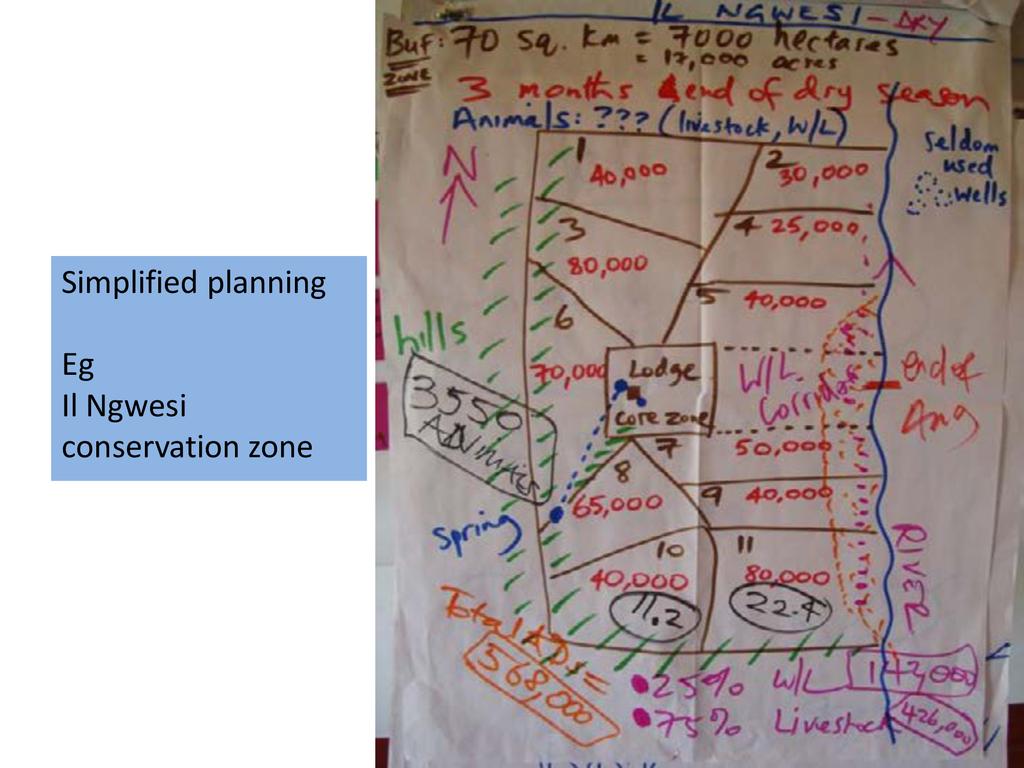 Simplified planning
Eg
Il Ngwesi
conservation zone
IL NGWESI - DRY
Buf: 70 sq. km = 7000 hectares
ZONE = 17,000 acres
3 months end of dry season
Animals: ??? (livestock, W/L)
N
Seldom
used
wells
1
40,000
2
30,000
3
80,000
4 25,000
5
40,000
6
70,000
hills
3550
ANIMALS
Lodge
core zone
W/L
Corridor
end of
Aug
7
50,000
8
65,000
9 40,000
spring
10
40,000
11
80,000
11.2
22.4
RIVER
Total ADs =
568,000
25% W/L 142,000
75% Livestock 426,000